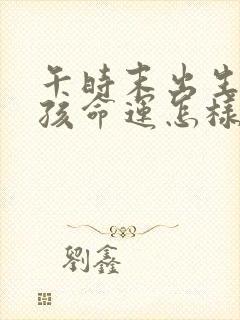 午時末出生
孩命運怎樣
劉鑫